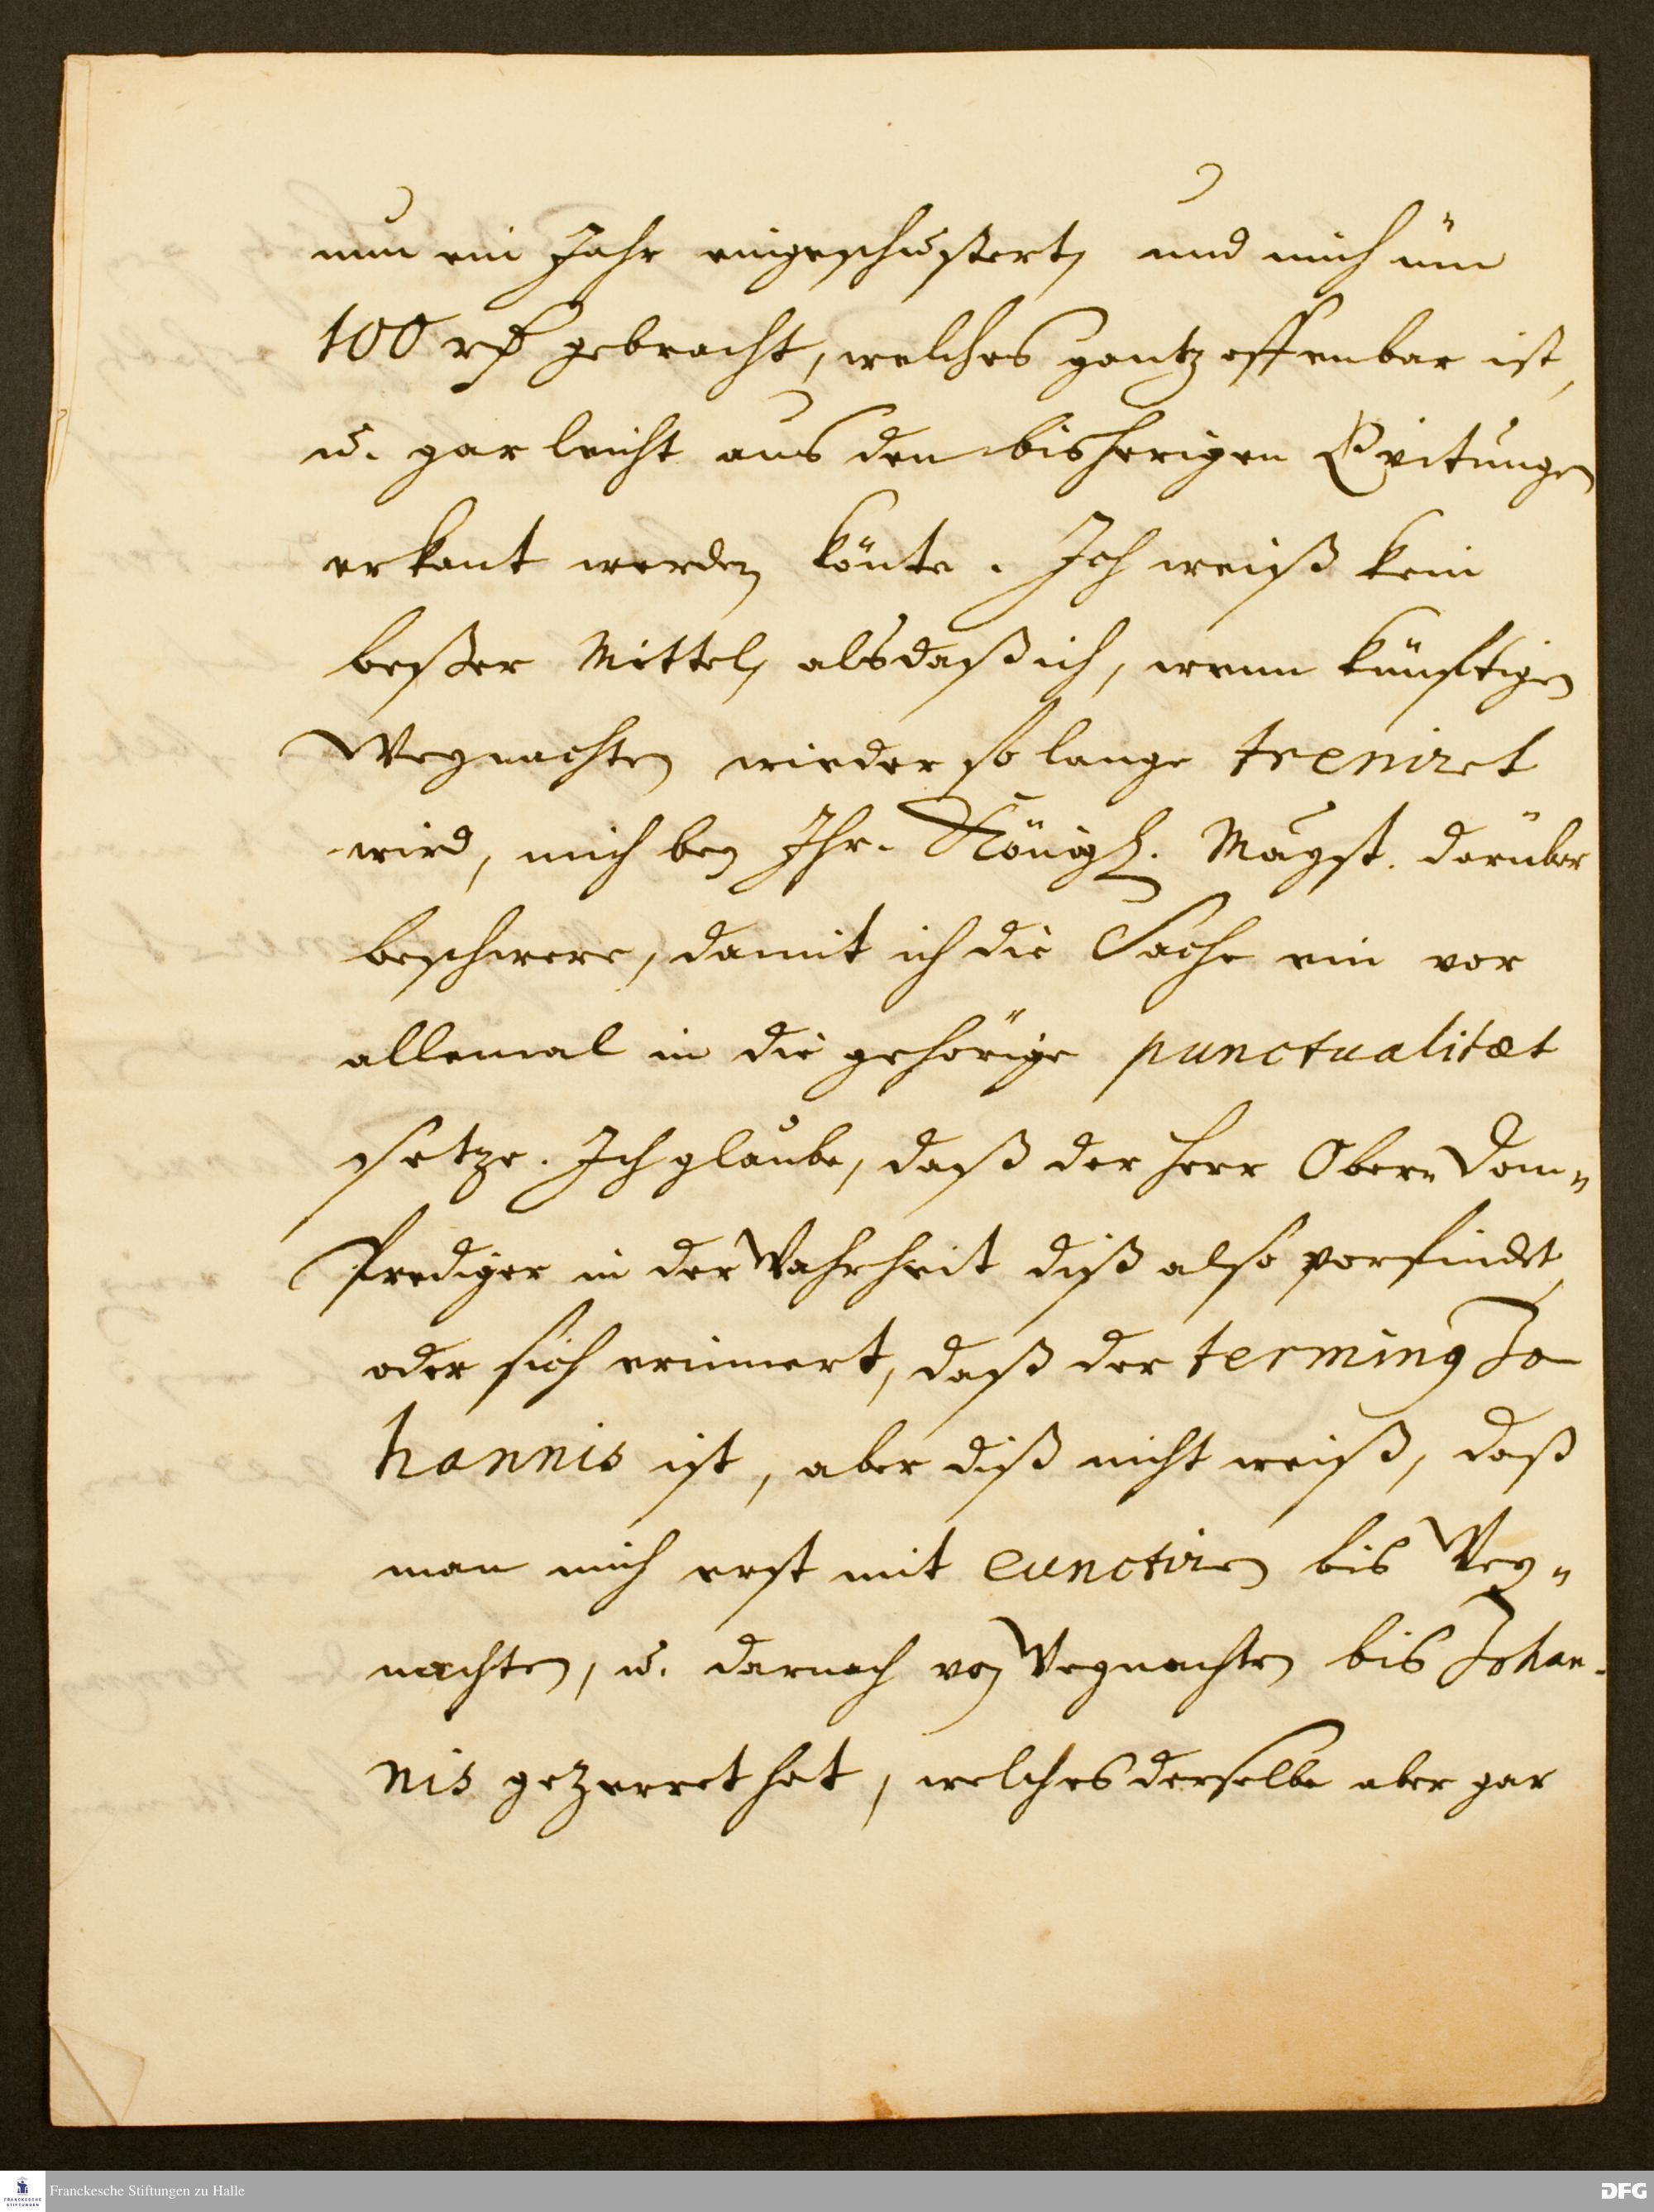 nun ein Jahr eingeschustert, und mich üm
100 rth gebracht, welches gantz offenbar ist,
u. gar leicht aus den bisherigen Qvitungen
erkant werden könte. Ich weiß kein
beßer Mittel, als daß ich, wenn künftigen
Weynachten wieder so lange treniret
wird, mich bey Ihr. Königl. Mayst. darüber
beschwere, damit ich die Sache ein vor
allemal in die gehörige punctualitæt
setze. Ich glaube, daß der Herr Ober-Dom-
Prediger in der Wahrheit diß also vorfindet,
oder sich erinnert, daß der terminus Jo-
hannis ist, aber diß nicht weiß, daß
man mich erst mit cunctiren bis Wey-
nachten, u. darnach von Weynachten bis Johan-
nis gezerret hat, welches derselbe aber gar
Franckesche Stiftungen zu Halle
FRANCKESCHE STIFTUNGEN
DFG